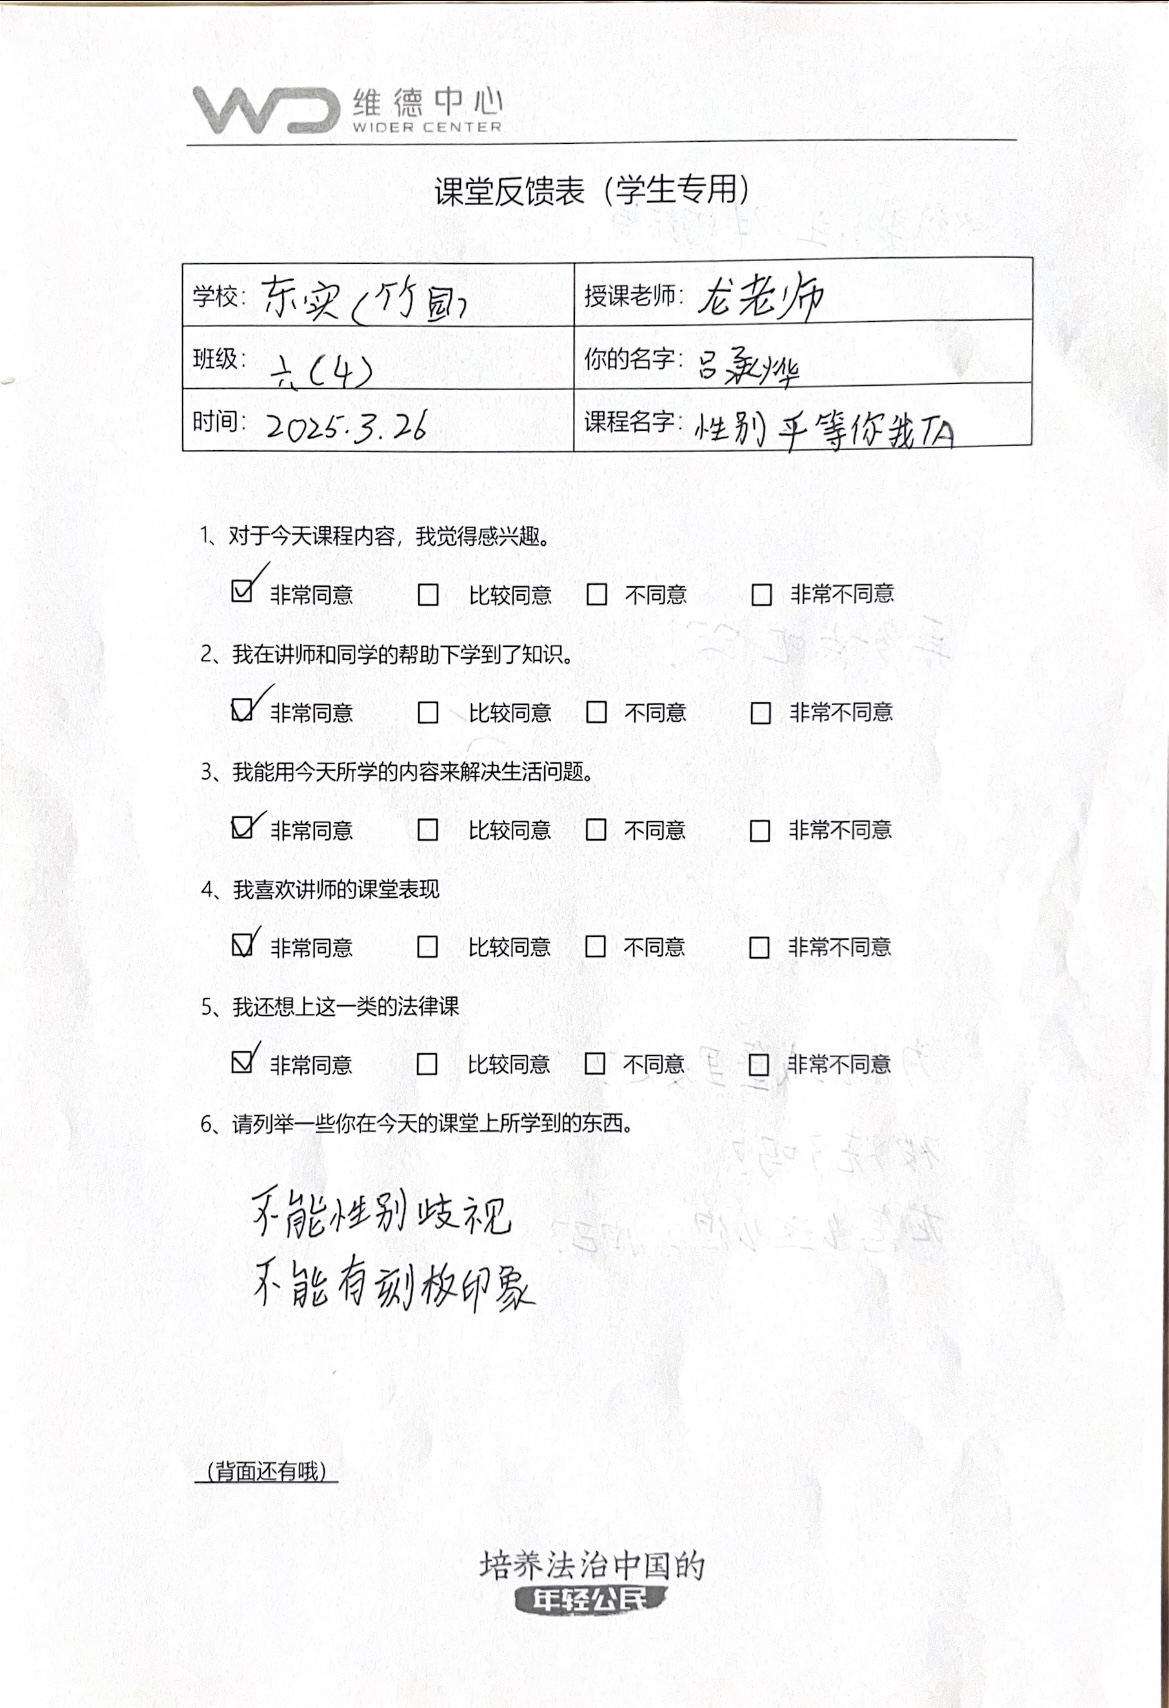 维德中心
WIDER CENTER
课堂反馈表（学生专用）
学校：东实（竹园） 授课老师：龙老师
班级：六（4） 你的名字：吕承烨
时间：2025.3.26 课程名字：性别平等你我TA
1、对于今天课程内容，我觉得感兴趣。
☑ 非常同意 □ 比较同意 □ 不同意 □ 非常不同意
2、我在讲师和同学的帮助下学到了知识。
☑ 非常同意 □ 比较同意 □ 不同意 □ 非常不同意
3、我能用今天所学的内容来解决生活问题。
☑ 非常同意 □ 比较同意 □ 不同意 □ 非常不同意
4、我喜欢讲师的课堂表现
☑ 非常同意 □ 比较同意 □ 不同意 □ 非常不同意
5、我还想上这一类的法律课
☑ 非常同意 □ 比较同意 □ 不同意 □ 非常不同意
6、请列举一些你在今天的课堂上所学到的东西。
不能性别歧视
不能有刻板印象
（背面还有哦）
培养法治中国的
年轻公民